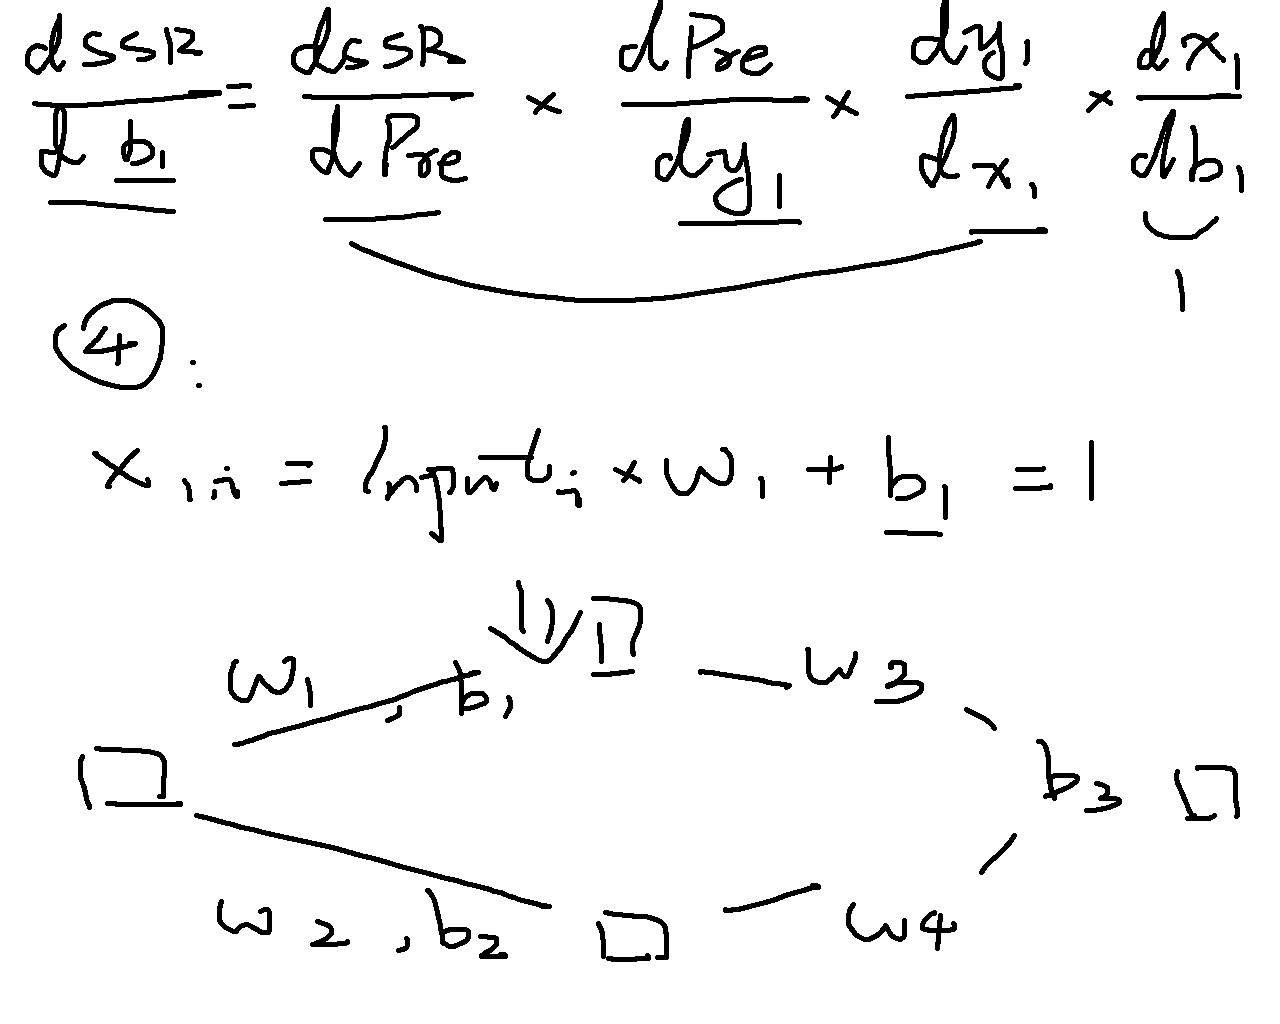 dSSR/db₁ = dSSR/dPre × dPre/dy₁ × dy₁/dx₁ × dx₁/db₁
1
④ :
x₁,ᵢ = Inputᵢ × w₁ + b₁ = 1
w₁, b₁ w₃
b₃
w₂, b₂ w₄